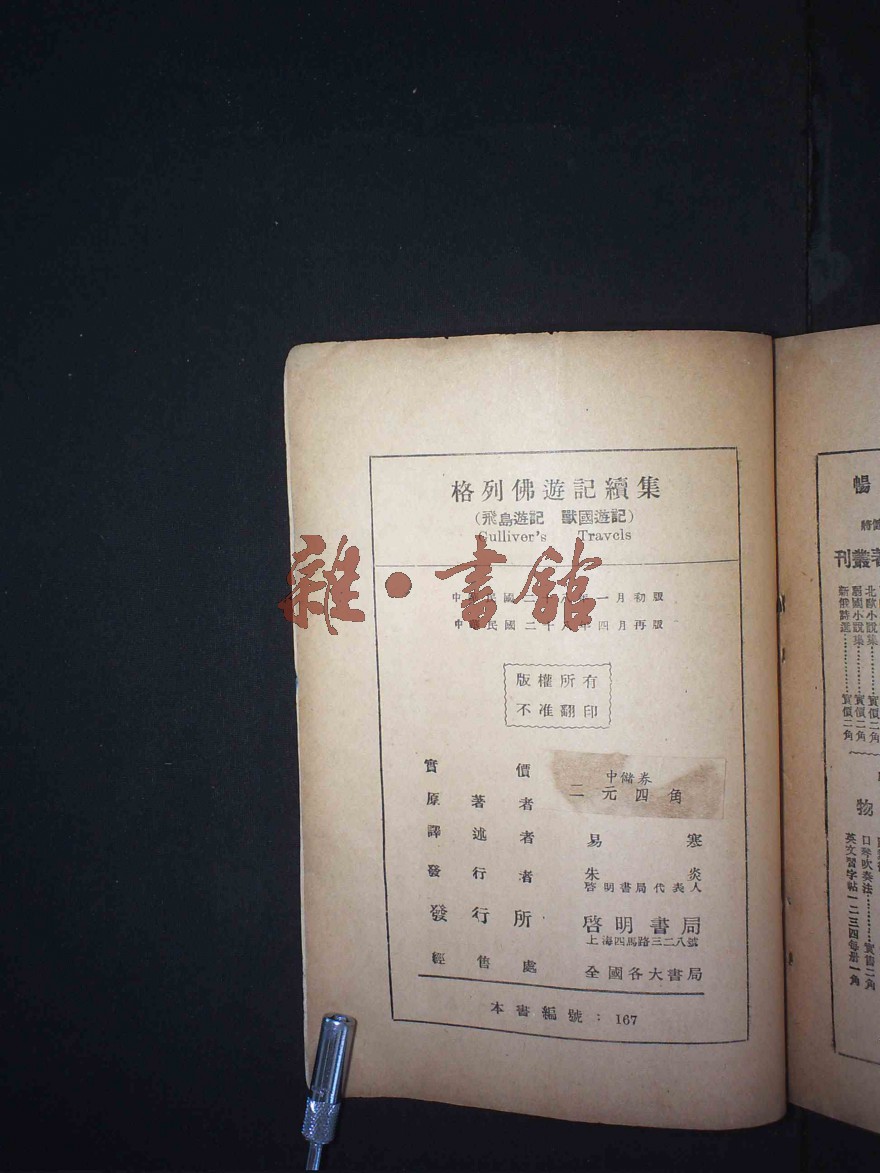 格列佛遊記續集
(飛島遊記 獸國遊記)
Gulliver's Travels
中華民國二十八年一月初版
中華民國二十八年四月再版
版權所有
不准翻印
實價 中儲券
二元四角
原著者
譯述者 易寒
發行者 朱炎
啓明書局代表人
發行所 啓明書局
上海四馬路三二八號
經售處 全國各大書局
本書編號：167
雜·書館
暢
刊叢著
北歐小說集…………實價二角
弱國小說集…………實價二角
新俄詩選…………實價二角
物
口琴吹奏法…………實售二角
英文習字帖一二三四每册一角